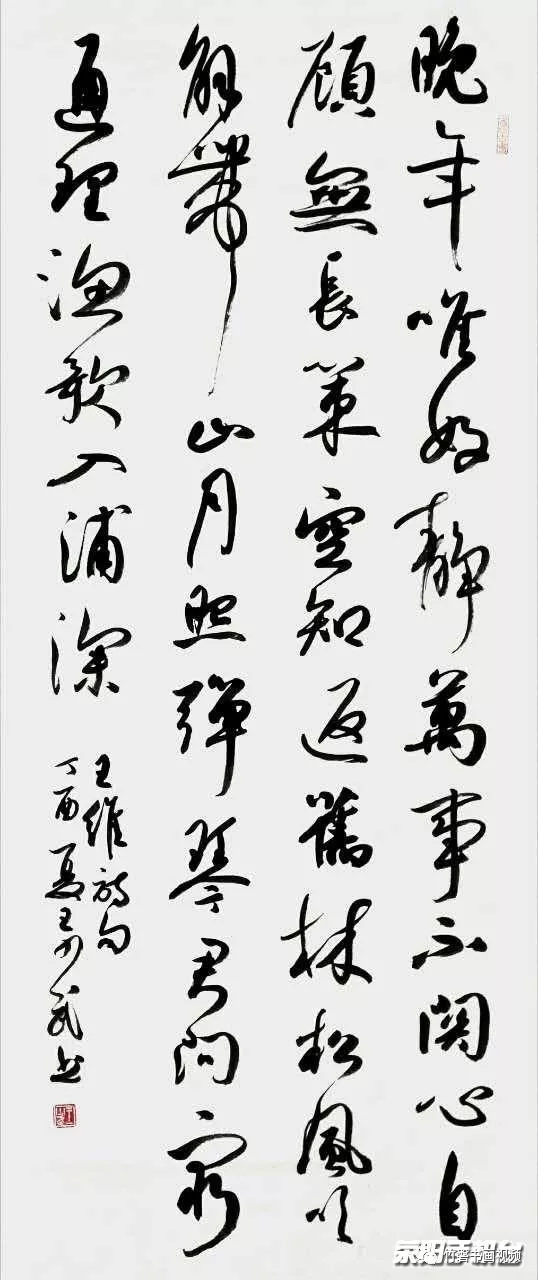 晚年唯好静萬事不関心自
顧無長策空知返舊林松風吹
解帶山月照彈琴君問窮
通理漁歌入浦深
王維詩句
丁酉夏王少武书
竹磬书画视频